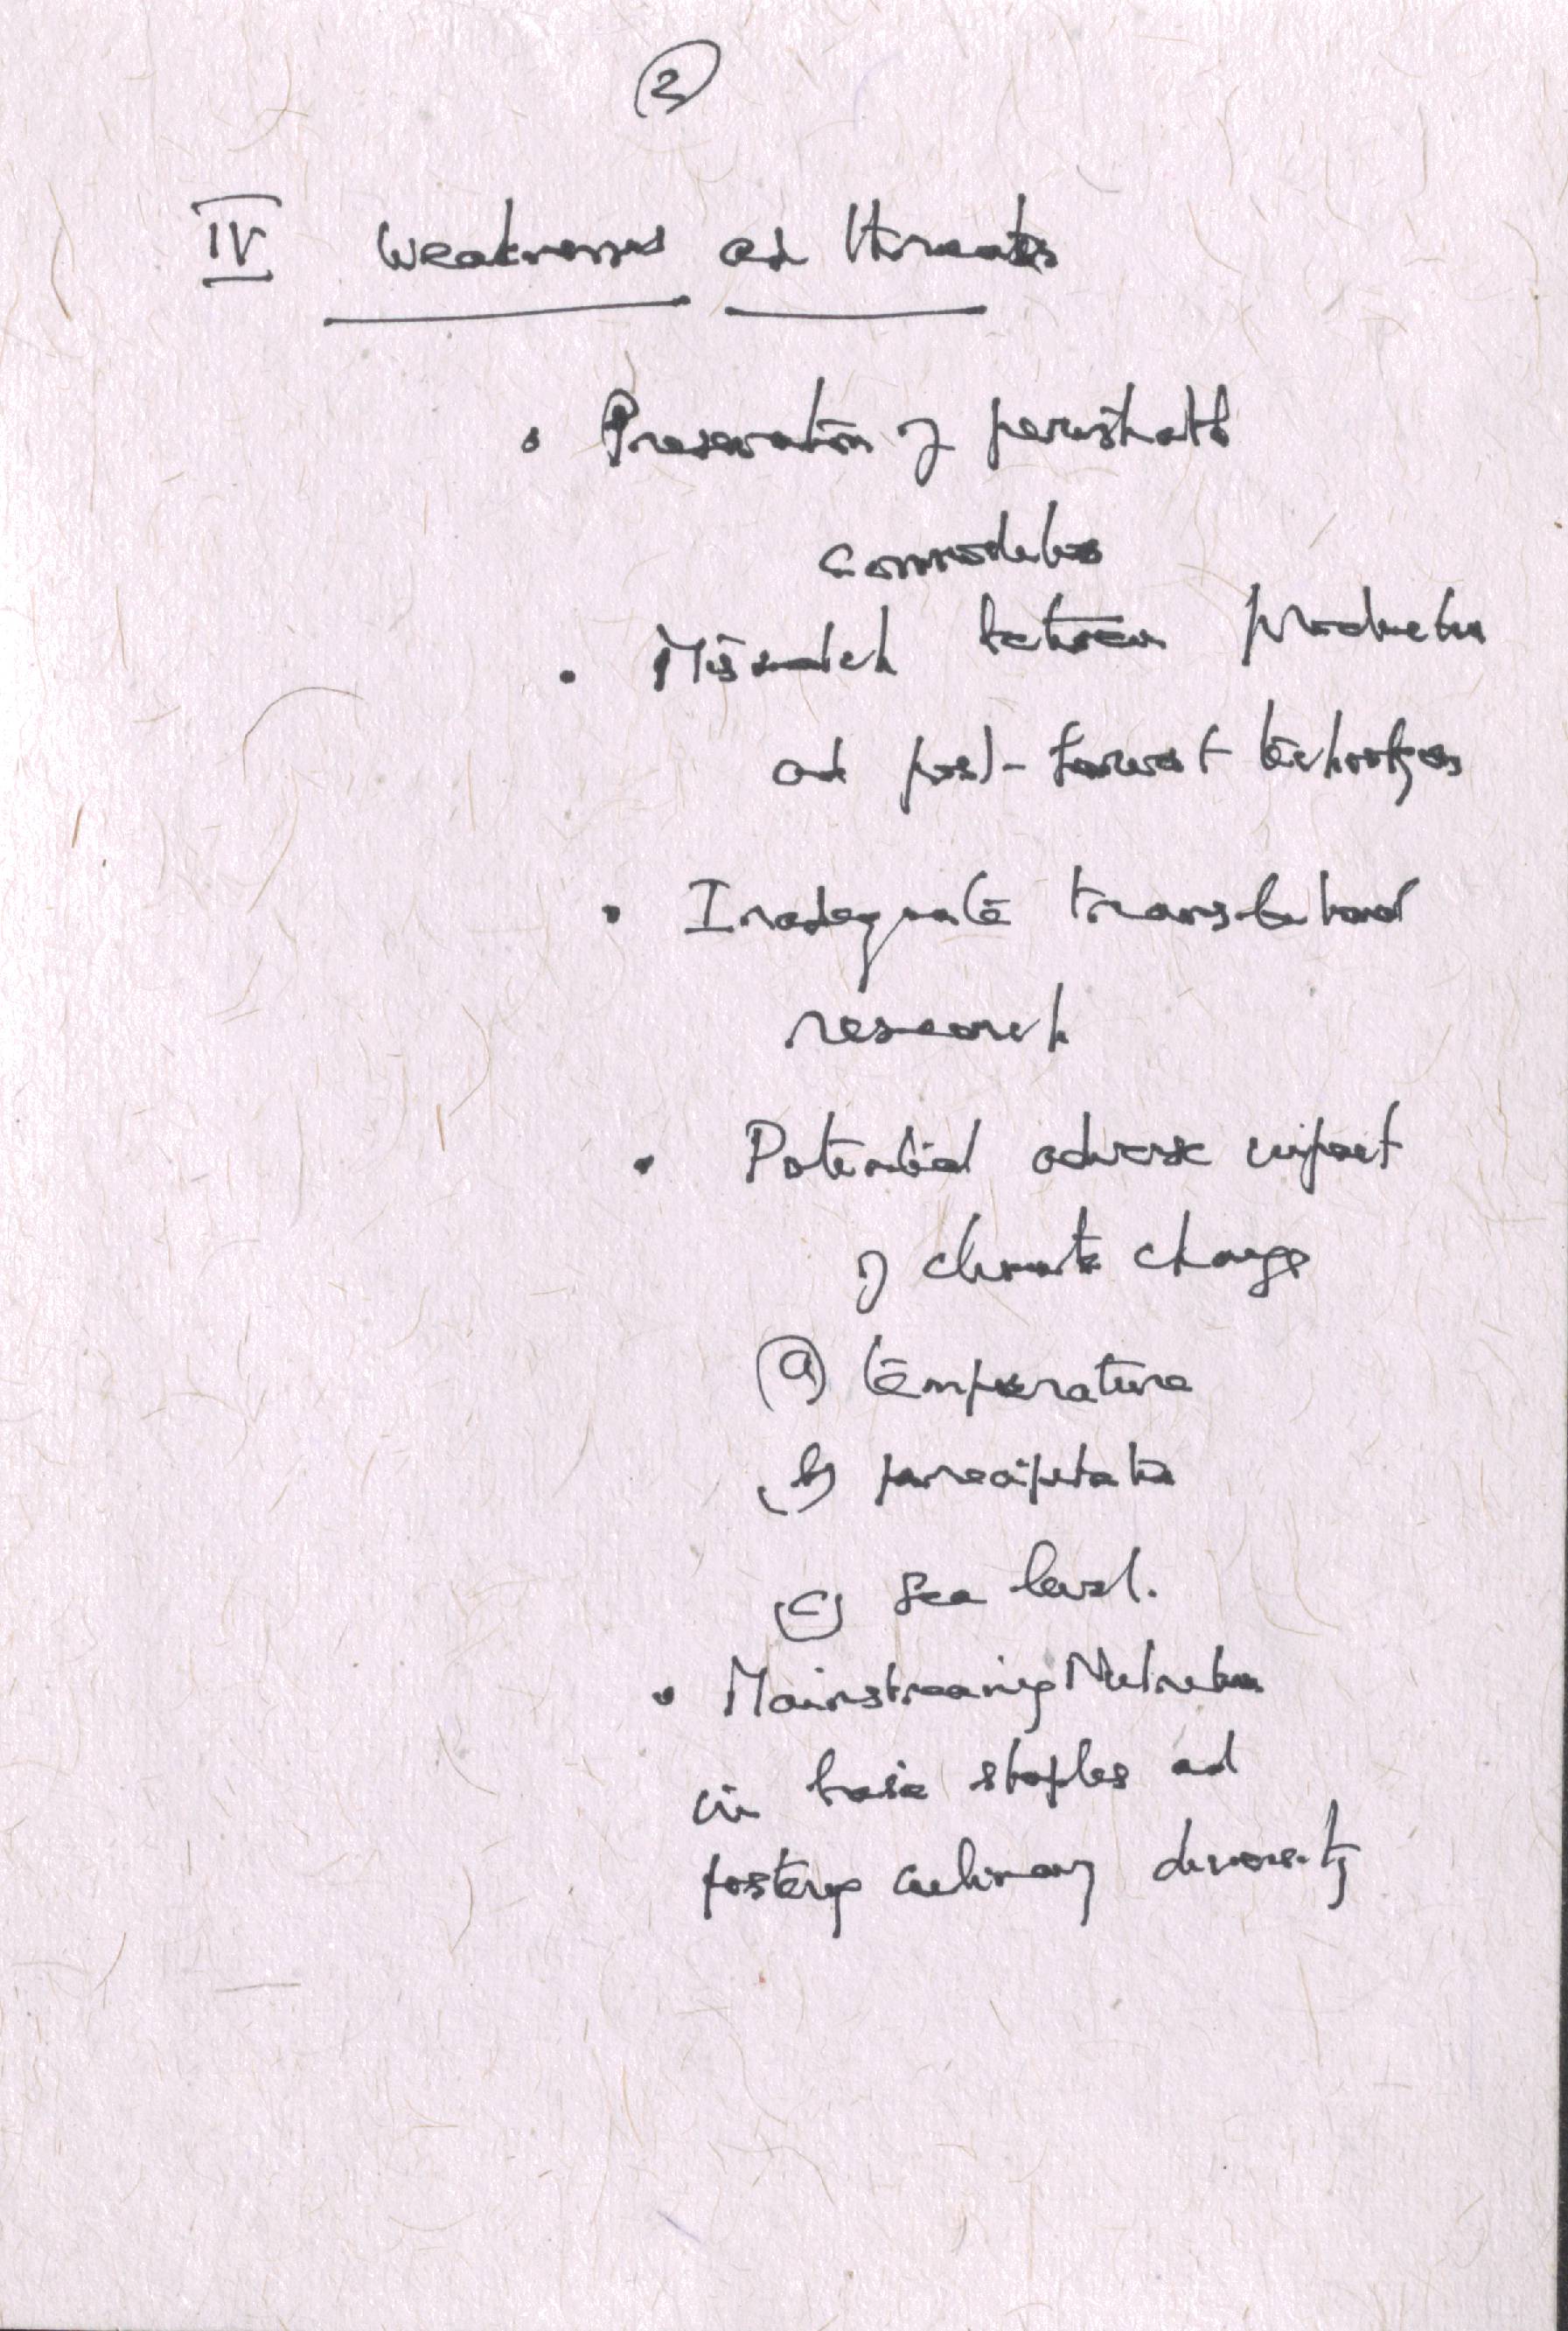 2
IV Weaknesses and threats
• Preservation of perishable
commodities
• Mismatch between production
and post-harvest technologies
• Inadequate translational
research
• Potential adverse impact
of climate change
(a) temperature
(b) precipitation
(c) sea level.
• Mainstreaming Nutrition
in basic staples and
fostering culinary diversity